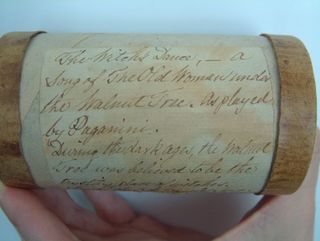 The Witch's Dance, – a
Song of The Old Woman under
the Walnut Tree. As played
by Paganini.
During the dark ages, the Walnut
Tree was believed to be the
place of witches.